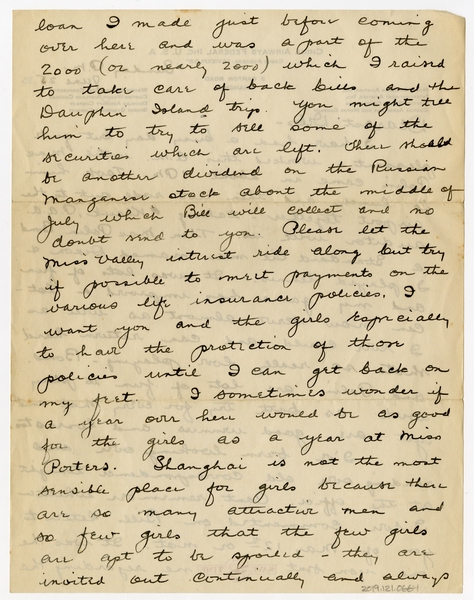 loan I made just before coming
over here and was a part of the
2000 (or nearly 2000) which I raised
to take care of back bills and the
Dauphin Island trip. You might tell
him to try to sell some of the
securities which are left. There should
be another dividend on the Russian
Manganese stock about the middle of
July which Bill will collect and no
doubt send to you. Please let the
Miss Valley interest ride along but try
if possible to meet payments on the
various life insurance policies. I
want you and the girls especially
to have the protection of those
policies until I can get back on
my feet. I sometimes wonder if
a year over here would be as good
for the girls as a year at Miss
Porters. Shanghai is not the most
sensible place for girls because there
are so many attractive men and
so few girls that the few girls
are apt to be spoiled - they are
invited out continually and always
2019.121.0664